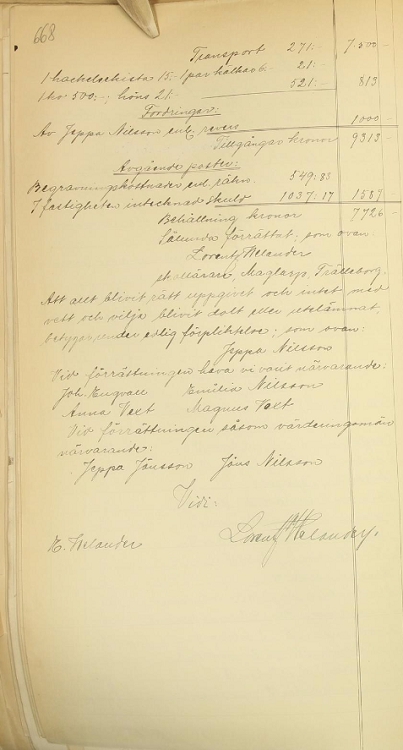 668
Transport 271:- 7.500-
1 hackelsekista 15:- 1 par halkar 6:- 21:-
1 ko 500:-; höns 21:- 521:- 813
Fordringar:
Av Jeppa Nilsson enl. revers 1000-
Tillgångar kronor 9313-
Avgående poster:
Begravningskostnader enl. räkn. 549:83
I fastigheten intecknad skuld 1037:17 1587
Behållning kronor 7726-
Sålunda förrättat, som ovan.
Lorentz Welander
skollärare, Maglarp, Trälleborg.
Att allt blivit rätt uppgivet och intet med
vett och vilja blivit dolt eller utelämnat,
betygas under edlig förpliktelse; som ovan:
Jeppa Nilsson
Vid förrättningen hava vi varit närvarande:
Joh. Engvall Emilia Nilsson
Anna Vext Magnus Vext
Vid förrättningen såsom värderingsmän
närvarande:
Jeppa Jönsson Jöns Nilsson
Vidi:
E. Welander Lorentz Welander.